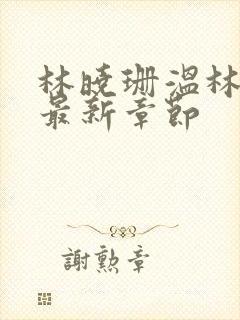 林曉珊溫林
最新章節
謝勲章